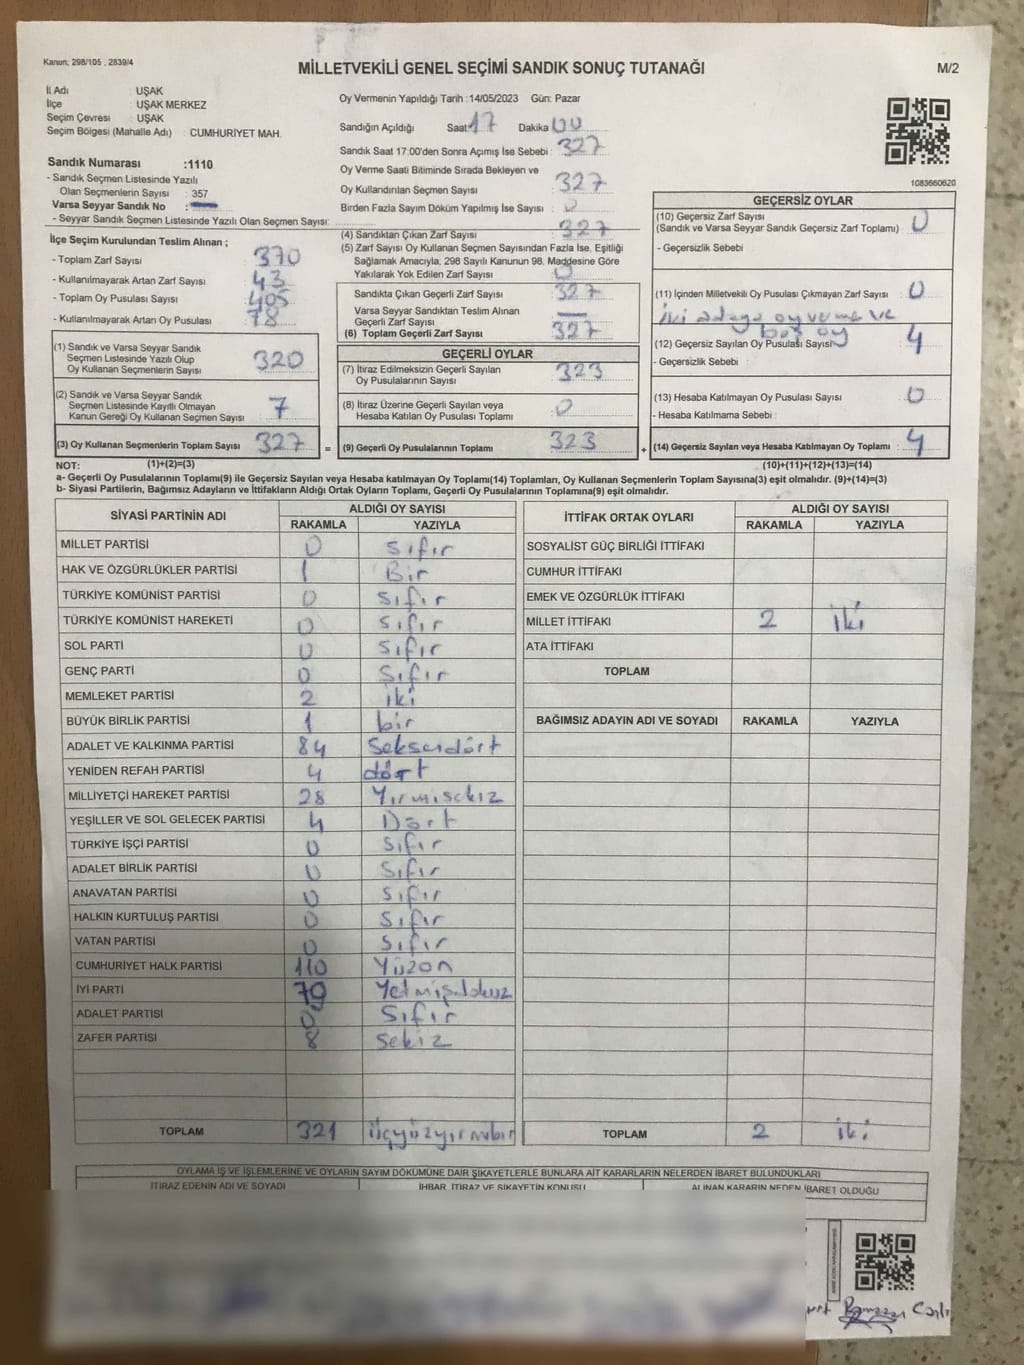 Kanun; 298/105 , 2839/4
MİLLETVEKİLİ GENEL SEÇİMİ SANDIK SONUÇ TUTANAĞI
M/2
İl Adı : UŞAK
İlçe : UŞAK MERKEZ
Seçim Çevresi : UŞAK
Seçim Bölgesi (Mahalle Adı) : CUMHURİYET MAH.
Sandık Numarası :1110
- Sandık Seçmen Listesinde Yazılı
Olan Seçmenlerin Sayısı : 357
Varsa Seyyar Sandık No :
- Seyyar Sandık Seçmen Listesinde Yazılı Olan Seçmen Sayısı:
Oy Vermenin Yapıldığı Tarih :14/05/2023 Gün: Pazar
Sandığın Açıldığı Saat 17 Dakika 00
Sandık Saat 17:00'den Sonra Açımış İse Sebebi : 327
Oy Verme Saati Bitiminde Sırada Bekleyen ve
Oy Kullandırılan Seçmen Sayısı : 327
Birden Fazla Sayım Döküm Yapılmış İse Sayısı : 0
1083660620
İlçe Seçim Kurulundan Teslim Alınan ;
- Toplam Zarf Sayısı : 370
- Kullanılmayarak Artan Zarf Sayısı : 43
- Toplam Oy Pusulası Sayısı : 405
- Kullanılmayarak Artan Oy Pusulası : 78
(1) Sandık ve Varsa Seyyar Sandık
Seçmen Listesinde Yazılı Olup
Oy Kullanan Seçmenlerin Sayısı : 320
(2) Sandık ve Varsa Seyyar Sandık
Seçmen Listesinde Kayıtlı Olmayan
Kanun Gereği Oy Kullanan Seçmen Sayısı : 7
(3) Oy Kullanan Seçmenlerin Toplam Sayısı : 327 =
(4) Sandıktan Çıkan Zarf Sayısı : 327
(5) Zarf Sayısı Oy Kullanan Seçmen Sayısından Fazla İse, Eşitliği
Sağlamak Amacıyla, 298 Sayılı Kanunun 98. Maddesine Göre
Yakılarak Yok Edilen Zarf Sayısı : 0
Sandıkta Çıkan Geçerli Zarf Sayısı : 327
Varsa Seyyar Sandıktan Teslim Alınan
Geçerli Zarf Sayısı :
(6) Toplam Geçerli Zarf Sayısı : 327
GEÇERLİ OYLAR
(7) İtiraz Edilmeksizin Geçerli Sayılan
Oy Pusulalarının Sayısı : 323
(8) İtiraz Üzerine Geçerli Sayılan veya
Hesaba Katılan Oy Pusulası Toplamı : 0
(9) Geçerli Oy Pusulalarının Toplamı : 323 +
GEÇERSİZ OYLAR
(10) Geçersiz Zarf Sayısı
(Sandık ve Varsa Seyyar Sandık Geçersiz Zarf Toplamı) : 0
- Geçersizlik Sebebi :
(11) İçinden Milletvekili Oy Pusulası Çıkmayan Zarf Sayısı : 0
iki adaya oy verme ve
boş oy
(12) Geçersiz Sayılan Oy Pusulası Sayısı : 4
- Geçersizlik Sebebi :
(13) Hesaba Katılmayan Oy Pusulası Sayısı : 0
- Hesaba Katılmama Sebebi :
(14) Geçersiz Sayılan veya Hesaba Katılmayan Oy Toplamı : 4
NOT: (1)+(2)=(3) (10)+(11)+(12)+(13)=(14)
a- Geçerli Oy Pusulalarının Toplamı(9) ile Geçersiz Sayılan veya Hesaba katılmayan Oy Toplamı(14) Toplamları, Oy Kullanan Seçmenlerin Toplam Sayısına(3) eşit olmalıdır. (9)+(14)=(3)
b- Siyasi Partilerin, Bağımsız Adayların ve İttifakların Aldığı Ortak Oyların Toplamı, Geçerli Oy Pusulalarının Toplamına(9) eşit olmalıdır.
SİYASİ PARTİNİN ADI ALDIĞI OY SAYISI
RAKAMLA YAZIYLA
MİLLET PARTİSİ 0 sıfır
HAK VE ÖZGÜRLÜKLER PARTİSİ 1 Bir
TÜRKİYE KOMÜNİST PARTİSİ 0 sıfır
TÜRKİYE KOMÜNİST HAREKETİ 0 sıfır
SOL PARTİ 0 sıfır
GENÇ PARTİ 0 sıfır
MEMLEKET PARTİSİ 2 iki
BÜYÜK BİRLİK PARTİSİ 1 bir
ADALET VE KALKINMA PARTİSİ 84 Seksendört
YENİDEN REFAH PARTİSİ 4 dört
MİLLİYETÇİ HAREKET PARTİSİ 28 Yirmisekiz
YEŞİLLER VE SOL GELECEK PARTİSİ 4 Dört
TÜRKİYE İŞÇİ PARTİSİ 0 sıfır
ADALET BİRLİK PARTİSİ 0 sıfır
ANAVATAN PARTİSİ 0 sıfır
HALKIN KURTULUŞ PARTİSİ 0 sıfır
VATAN PARTİSİ 0 sıfır
CUMHURİYET HALK PARTİSİ 110 Yüzon
İYİ PARTİ
ADALET PARTİSİ 0 sıfır
ZAFER PARTİSİ 8 sekiz
TOPLAM 321 üçyüzyirmibir
İTTİFAK ORTAK OYLARI ALDIĞI OY SAYISI
RAKAMLA YAZIYLA
SOSYALİST GÜÇ BİRLİĞİ İTTİFAKI
CUMHUR İTTİFAKI
EMEK VE ÖZGÜRLÜK İTTİFAKI
MİLLET İTTİFAKI 2 iki
ATA İTTİFAKI
TOPLAM
BAĞIMSIZ ADAYIN ADI VE SOYADI RAKAMLA YAZIYLA
TOPLAM 2 iki
OYLAMA İŞ VE İŞLEMLERİNE VE OYLARIN SAYIM DÖKÜMÜNE DAİR ŞİKAYETLERLE BUNLARA AİT KARARLARIN NELERDEN İBARET BULUNDUKLARI
İTİRAZ EDENİN ADI VE SOYADI İHBAR, İTİRAZ VE ŞİKAYETİN KONUSU ALINAN KARARIN NEDEN İBARET OLDUĞU